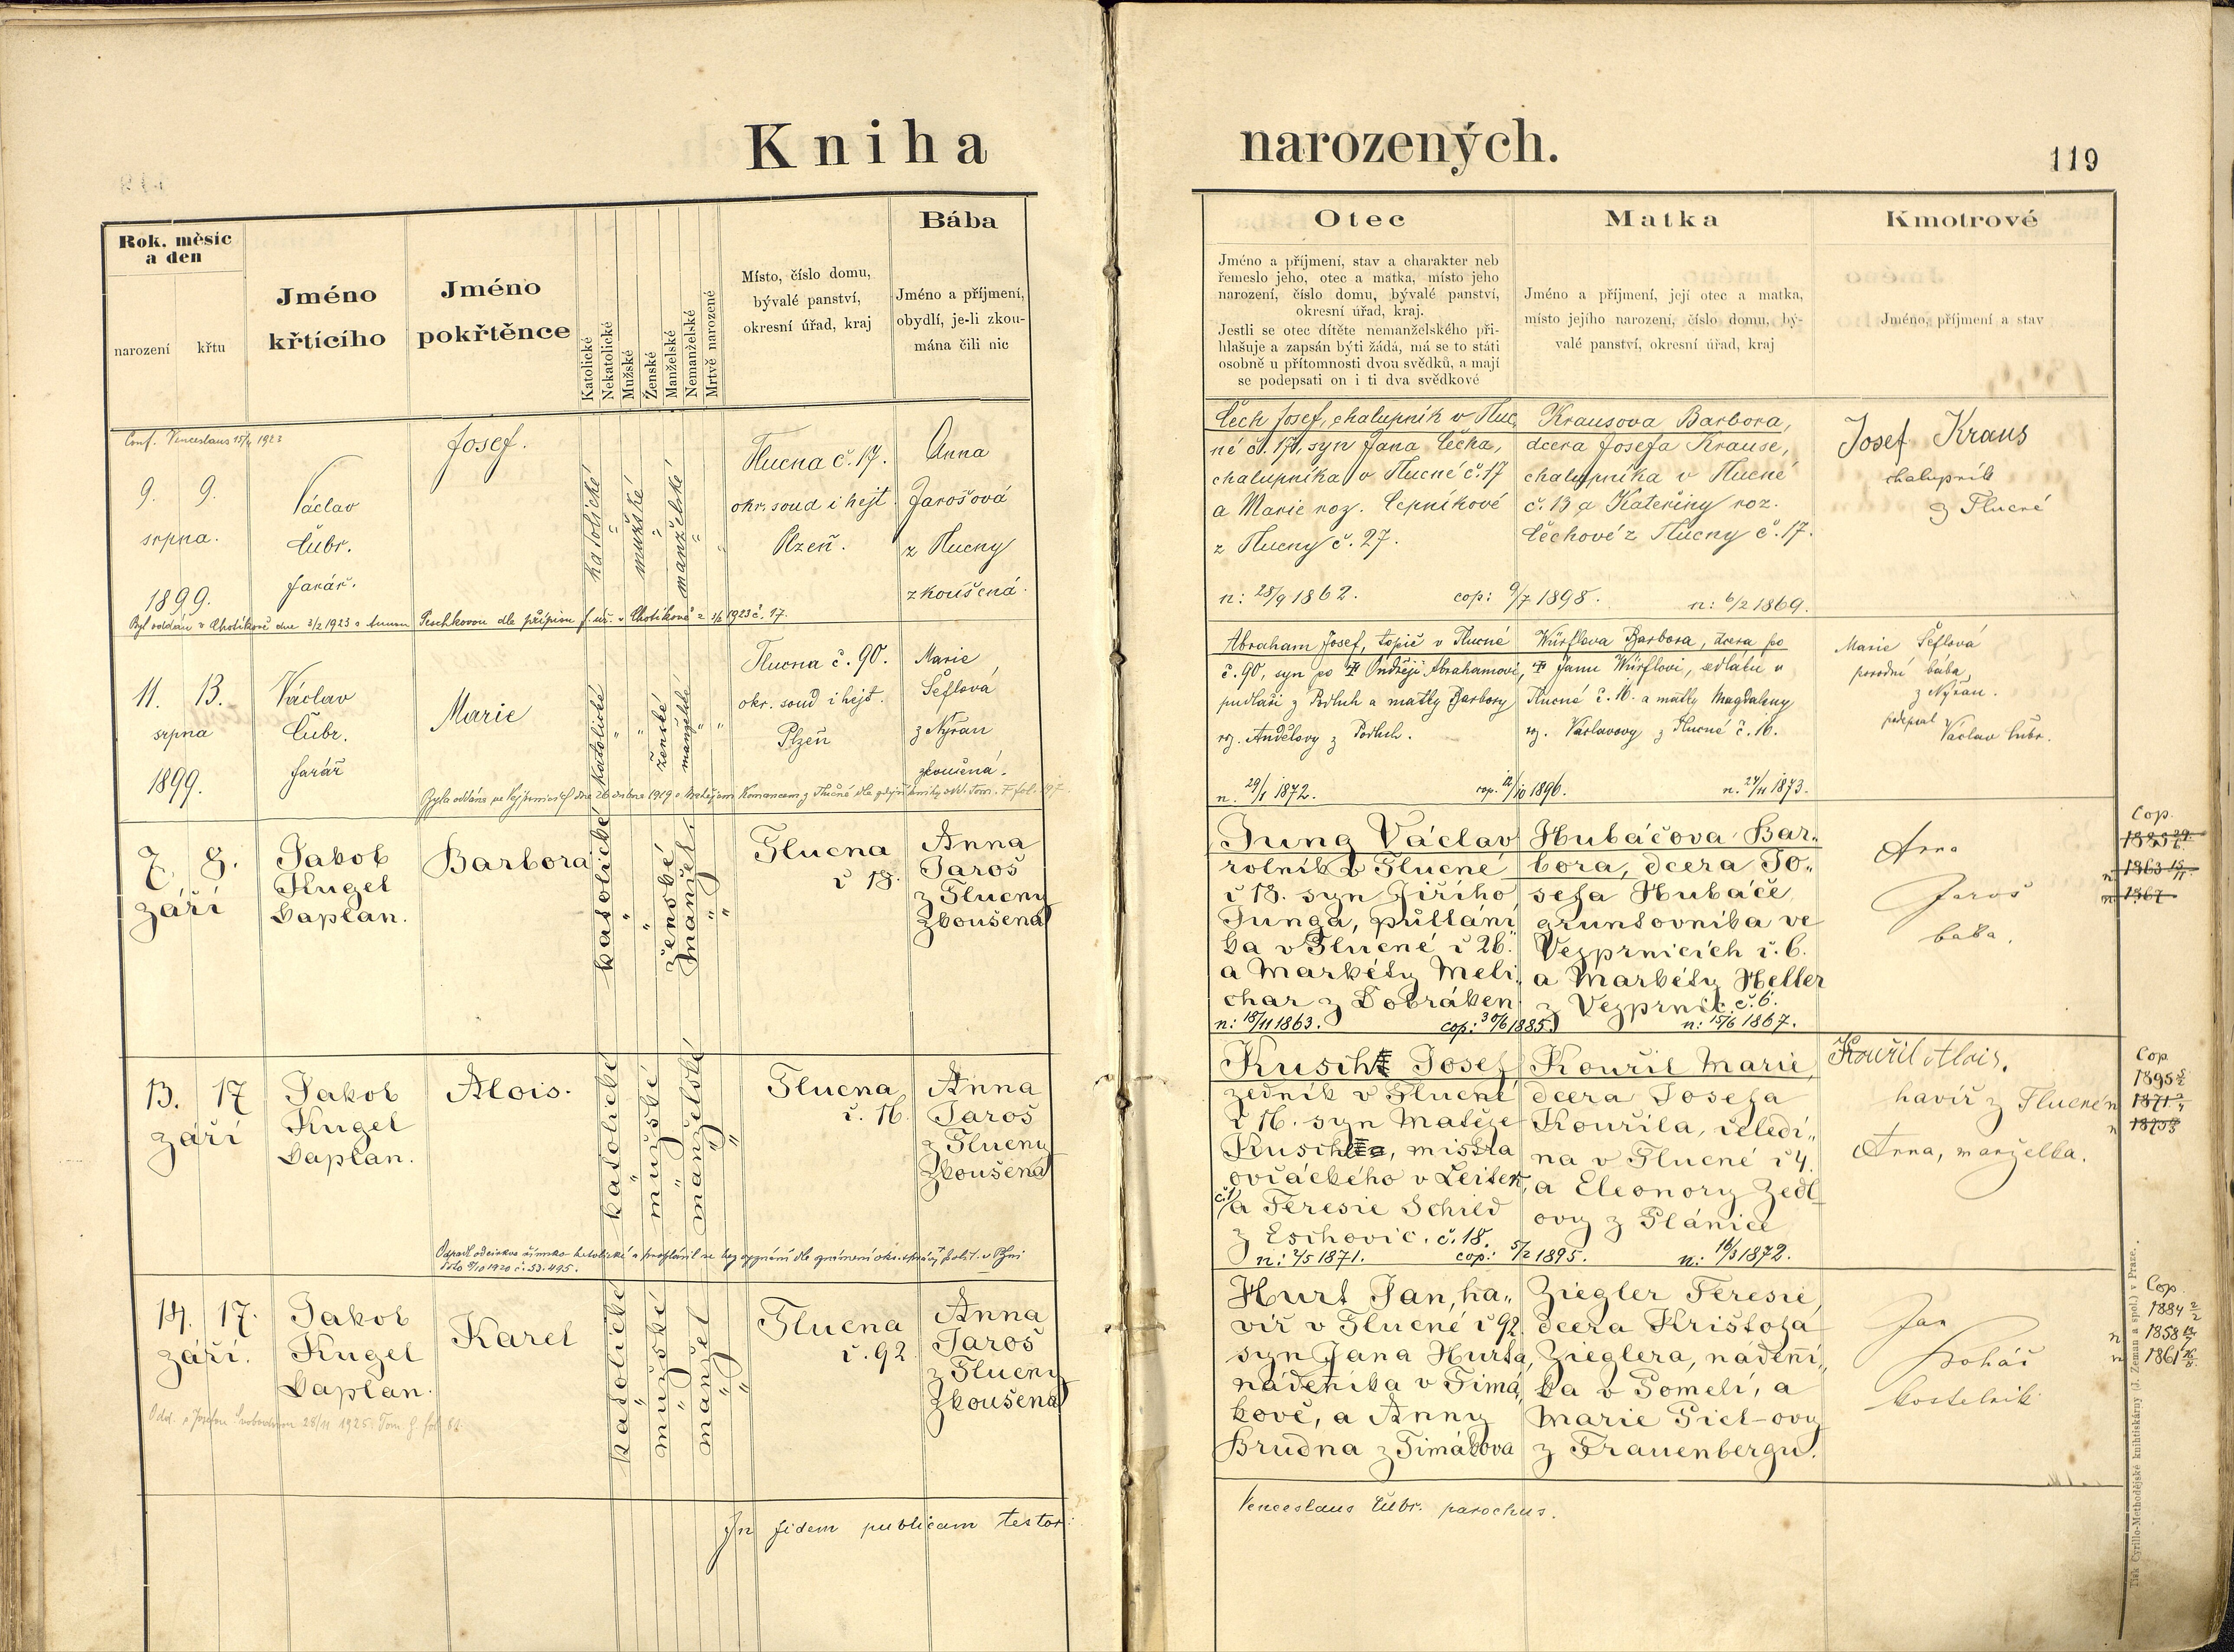 Kniha narozených.
119
Rok, měsíc
a den
narození
křtu
Jméno
křtícího
Jméno
pokřtěnce
Katolické
Nekatolické
Mužské
Ženské
Manželské
Nemanželské
Mrtvě narozené
Místo, číslo domu,
bývalé panství,
okresní úřad, kraj
Bába
Jméno a příjmení,
obydlí, je-li zkou-
mána čili nic
Otec
Jméno a příjmení, stav a charakter neb
řemeslo jeho, otec a matka, místo jeho
narození, číslo domu, bývalé panství,
okresní úřad, kraj.
Jestli se otec dítěte nemanželského při-
hlašuje a zapsán býti žádá, má se to státi
osobně u přítomnosti dvou svědků, a mají
se podepsati on i ti dva svědkové
Matka
Jméno a příjmení, její otec a matka,
místo jejího narození, číslo domu, bý-
valé panství, okresní úřad, kraj
Kmotrové
Jméno, příjmení a stav
Conf. Venceslaus 15/4 1923
9. 9.
srpna.
1899.
Václav
Čubr.
farář.
Josef.
katolické
mužské
manželské
Tlucna č. 17.
okr. soud i hejt.
Plzeň.
Anna
Jarošová
z Tlucny
zkoušená.
Čech Josef, chalupník v Tluc
né č. 17, syn Jana Čecha,
chalupníka v Tlucné č. 17
a Marie roz. Čepníkové
z Tlucny č. 27.
n: 28/9 1862.
cop: 9/7 1898.
Krausova Barbora,
dcera Josefa Krause,
chalupníka v Tlucné
č. 13 a Kateřiny roz.
Čechové z Tlucny č. 17.
n: 6/2 1869.
Josef Kraus
chalupník
z Tlucné
Byl oddán v Chotíkově dne 3/2 1923 s Annou Peschkovou dle přípisu f. úř. v Chotíkově z 1923 č. 17.
11. 13.
srpna
1899.
Václav
Čubr.
farář
Marie
katolické
ženské
manželské
Tlucna č. 90.
okr. soud i hejt.
Plzeň
Marie
Šeflová
z Nýřan
zkoušená.
Abraham Josef, topič v Tlucné
č. 90, syn po Ondřeji Abrahamovi,
pudláři z Podluh a matky Barbory
roz. Andělovy z Podluh.
n. 29/1 1872.
cop. 12/10 1896.
Würflova Barbora, dcera po
Janu Würflovi, sedláku v
Tlucné č. 16. a matky Magdaleny
roz. Václavovy z Tlucné č. 16.
n. 24/11 1873.
Marie Šeflová
porodní bába
z Nýřan.
podepsal
Václav Čubr.
Byla oddána ve Vejprnicích dne 26 1919 s Matějem Komancem z Tlučné dle zdejší knihy odd. Tom. F fol. 197.
7. 8.
září
Jakob
Kugel
kaplan.
Barbora
katolické
ženské
manžel.
Tlucna
č 18.
Anna
Jaroš
z Tlucny
zkoušená
Jung Václav
rolník v Tlucné
č 18. syn Jiřího
Junga, půllání
ka v Tlucné č 26.
a Markéty Meli
char z Dobráken
n: 18/11 1863.
cop: 30/6 1885.
Hubáčova Bar„
bora, dcera Jo„
sefa Hubáče
gruntovníka ve
Vejprnicích č. 6.
a Markéty Heller
z Vejprnic č. 6.
n: 15/6 1867.
Anna
Jaroš
bába.
Cop.
1885
n 1863
n 1867
13. 17
září
Jakob
Kugel
kaplan.
Alois.
katolické
mužské
manželské
Tlucna
č. 16.
Anna
Jaroš
z Tlucny
zkoušená
Kuscht Josef
zedník v Tlucné
č 16. syn Matěje
mistra
ovčáckého v Leitek,
č. 1/a Teresie Schild
z Eschovic. č. 18.
n: 2/5 1871.
cop: 5/2 1895.
Kouřil Marie,
dcera Josefa
Kouřila, čeledí„
na v Tlucné č 4.
a Eleonory Zedl
ovy z Plánice
n: 16/3 1872.
Kouřil Alois.
havíř z Tlucné
Anna, manželka.
Cop
1895
n 1871
n
Odpadl od církve římsko-katolické a prohlásil se bez vyznání dle oznámení okr. správy polit. v Plzni
dto 8/10 1920 č. 53.495.
14. 17.
září.
Jakob
Kugel
kaplan.
Karel
katolické
mužské
manžel
Tlucna
č. 92.
Anna
Jaroš
z Tlucny
zkoušená
Hurt Jan, ha„
víř v Tlucné č 92
syn Jana Hurta,
nádeníka v Timá
kově, a Anny
Brudna z Timákova
Ziegler Teresie,
dcera Krištofa
Zieglera, nádení„
ka v Pomeli, a
Marie Pick-ovy
z Frauenbergu.
Jan
kostelník
Cop.
1884 2/2
n 1858
n 1861
Odd. s Josefou Svobodovou 28/11 1925. Tom G. fol.
In fidem publicam testor:
Venceslaus Čubr. parochus.
Tisk Cyrillo-Methodějské knihtiskárny (J. Zeman a spol.) v Praze.